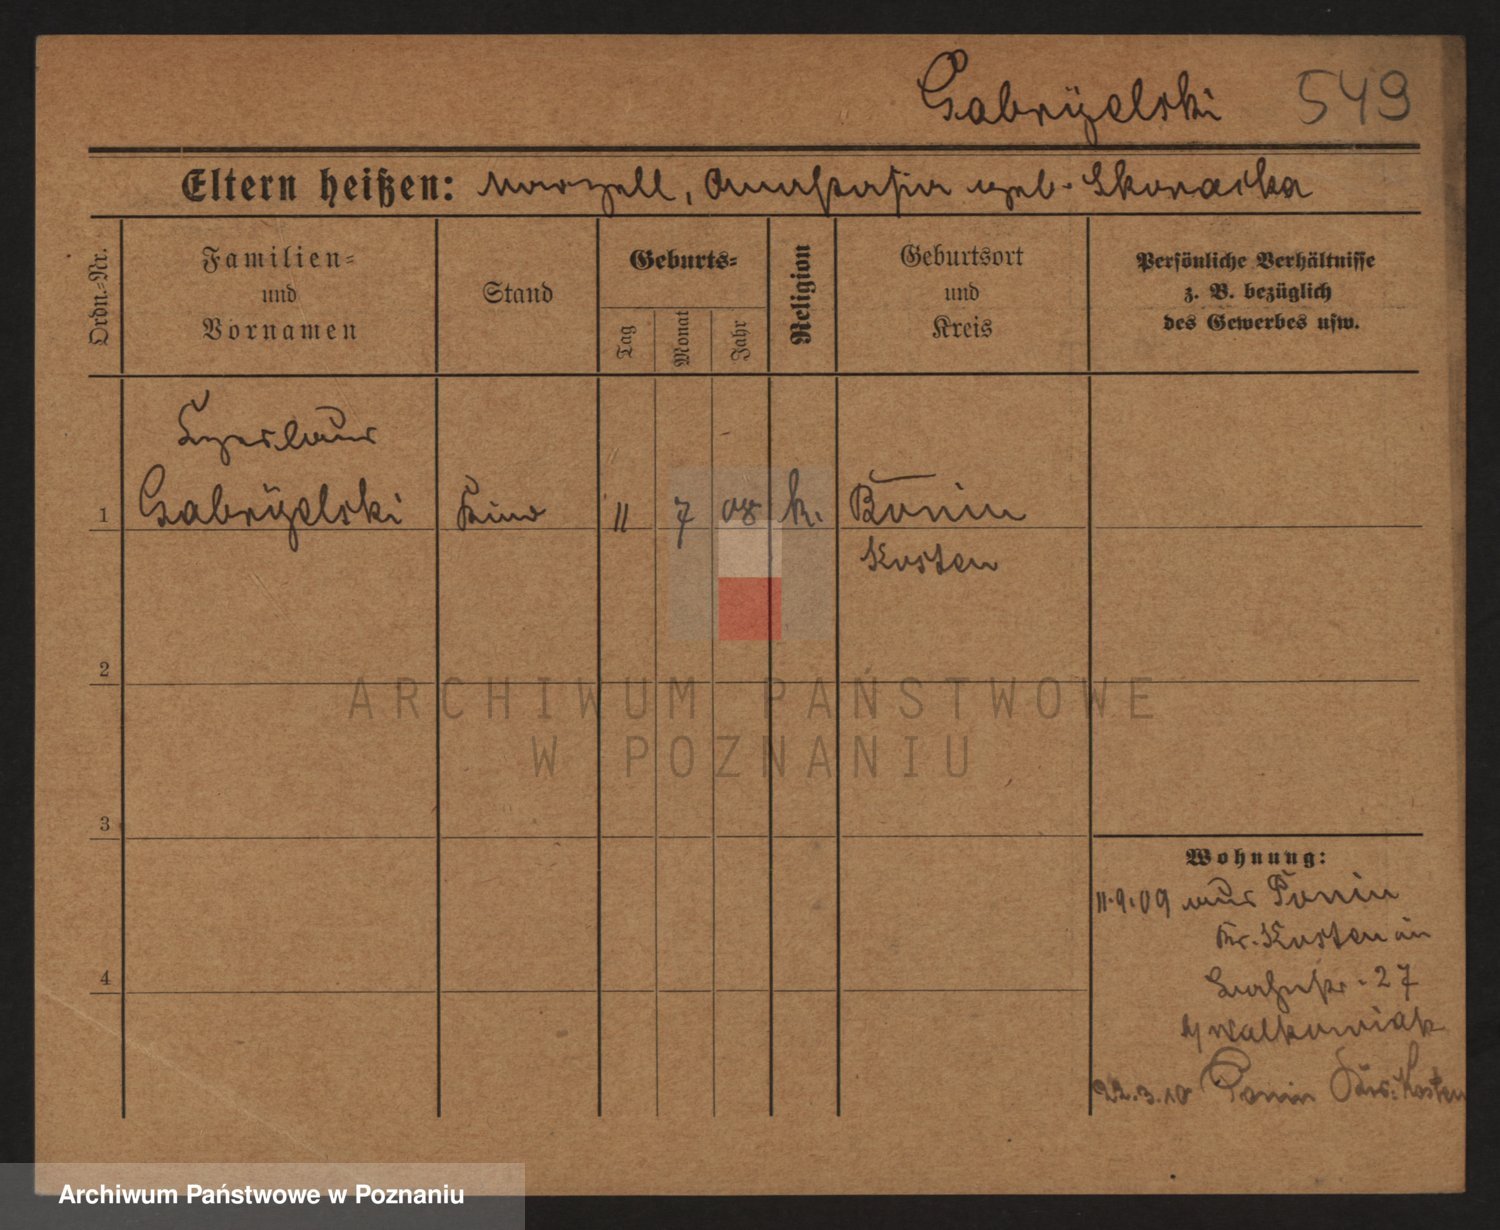 Gabryelski 549
Eltern heißen: Marzell, Anastasia geb. Skoracka
Ordn.-Nr.
Familien-
und
Vornamen
Stand
Geburts-
Tag
Monat
Jahr
Religion
Geburtsort
und
Kreis
Persönliche Verhältnisse
z. B. bezüglich
des Gewerbes usw.
1 Gabryelski Kind 11 7 08 k.
Kosten
2
3
4
Wohnung:
11.9.09 aus Ponin
Kr. Kosten in
27
b/ Walkowiak
22.3.10 Ponin Krs. Kosten
ARCHIWUM PAŃSTWOWE
W POZNANIU
Archiwum Państwowe w Poznaniu